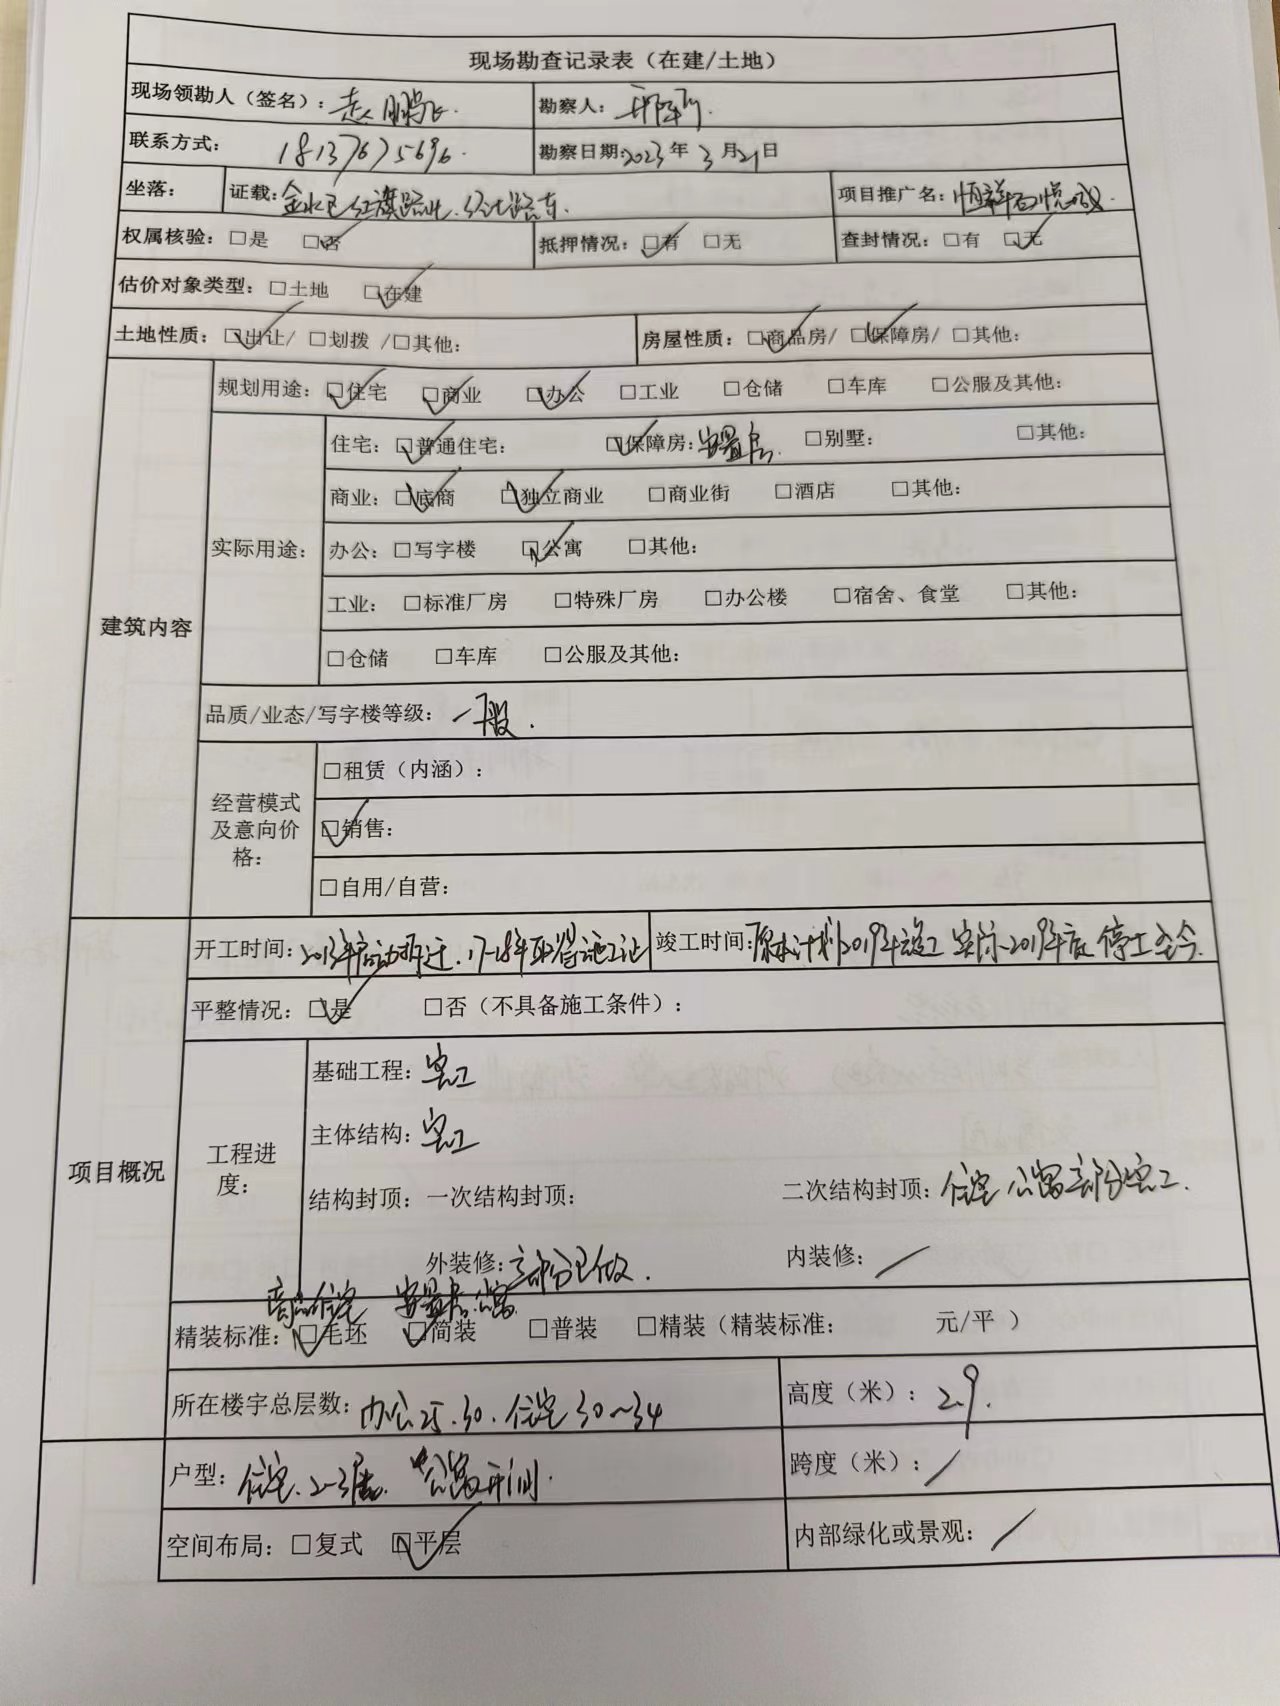 现场勘查记录表（在建/土地）
现场领勘人（签名）：赵鹏飞. 勘察人：
联系方式：18137675696. 勘察日期:2023年3月21日
坐落： 证载:金水区红旗路北.经七路东. 项目推广名：恒祥百悦城
权属核验：□是 ☑否 抵押情况：☑有 □无 查封情况：□有 ☑无
估价对象类型：□土地 ☑在建
土地性质：☑出让/ □划拨 /□其他： 房屋性质：☑商品房/ ☑保障房/ □其他：
建筑内容
规划用途：☑住宅 ☑商业 ☑办公 □工业 □仓储 □车库 □公服及其他：
实际用途：
住宅：☑普通住宅： ☑保障房：安置房. □别墅： □其他：
商业：☑底商 ☑独立商业 □商业街 □酒店 □其他：
办公：□写字楼 ☑公寓 □其他：
工业： □标准厂房 □特殊厂房 □办公楼 □宿舍、食堂 □其他：
□仓储 □车库 □公服及其他：
品质/业态/写字楼等级：一般.
经营模式及意向价格：
□租赁（内涵）：
☑销售：
□自用/自营：
项目概况
开工时间：2013年启动拆迁.17-18年取得施工证 竣工时间：原本计划2019年竣工 实际2019年底停工至今.
平整情况：☑是 □否（不具备施工条件）：
工程进度：
基础工程：完工
主体结构：完工
结构封顶：一次结构封顶： 二次结构封顶：住宅 公寓部分完工.
外装修：部分已做. 内装修：/
商品住宅 安置房.公寓
精装标准：☑毛坯 ☑简装 □普装 □精装（精装标准： 元/平 ）
所在楼宇总层数：办公25.30.住宅30~34 高度（米）：2.9.
户型：住宅.2-3居. 公寓开间. 跨度（米）：/
空间布局：□复式 ☑平层 内部绿化或景观：/